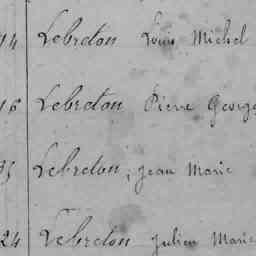 14 Lebreton Louis Michel
16 Lebreton Pierre George
Lebreton, Jean Marie
24 Lebreton Julien Marie